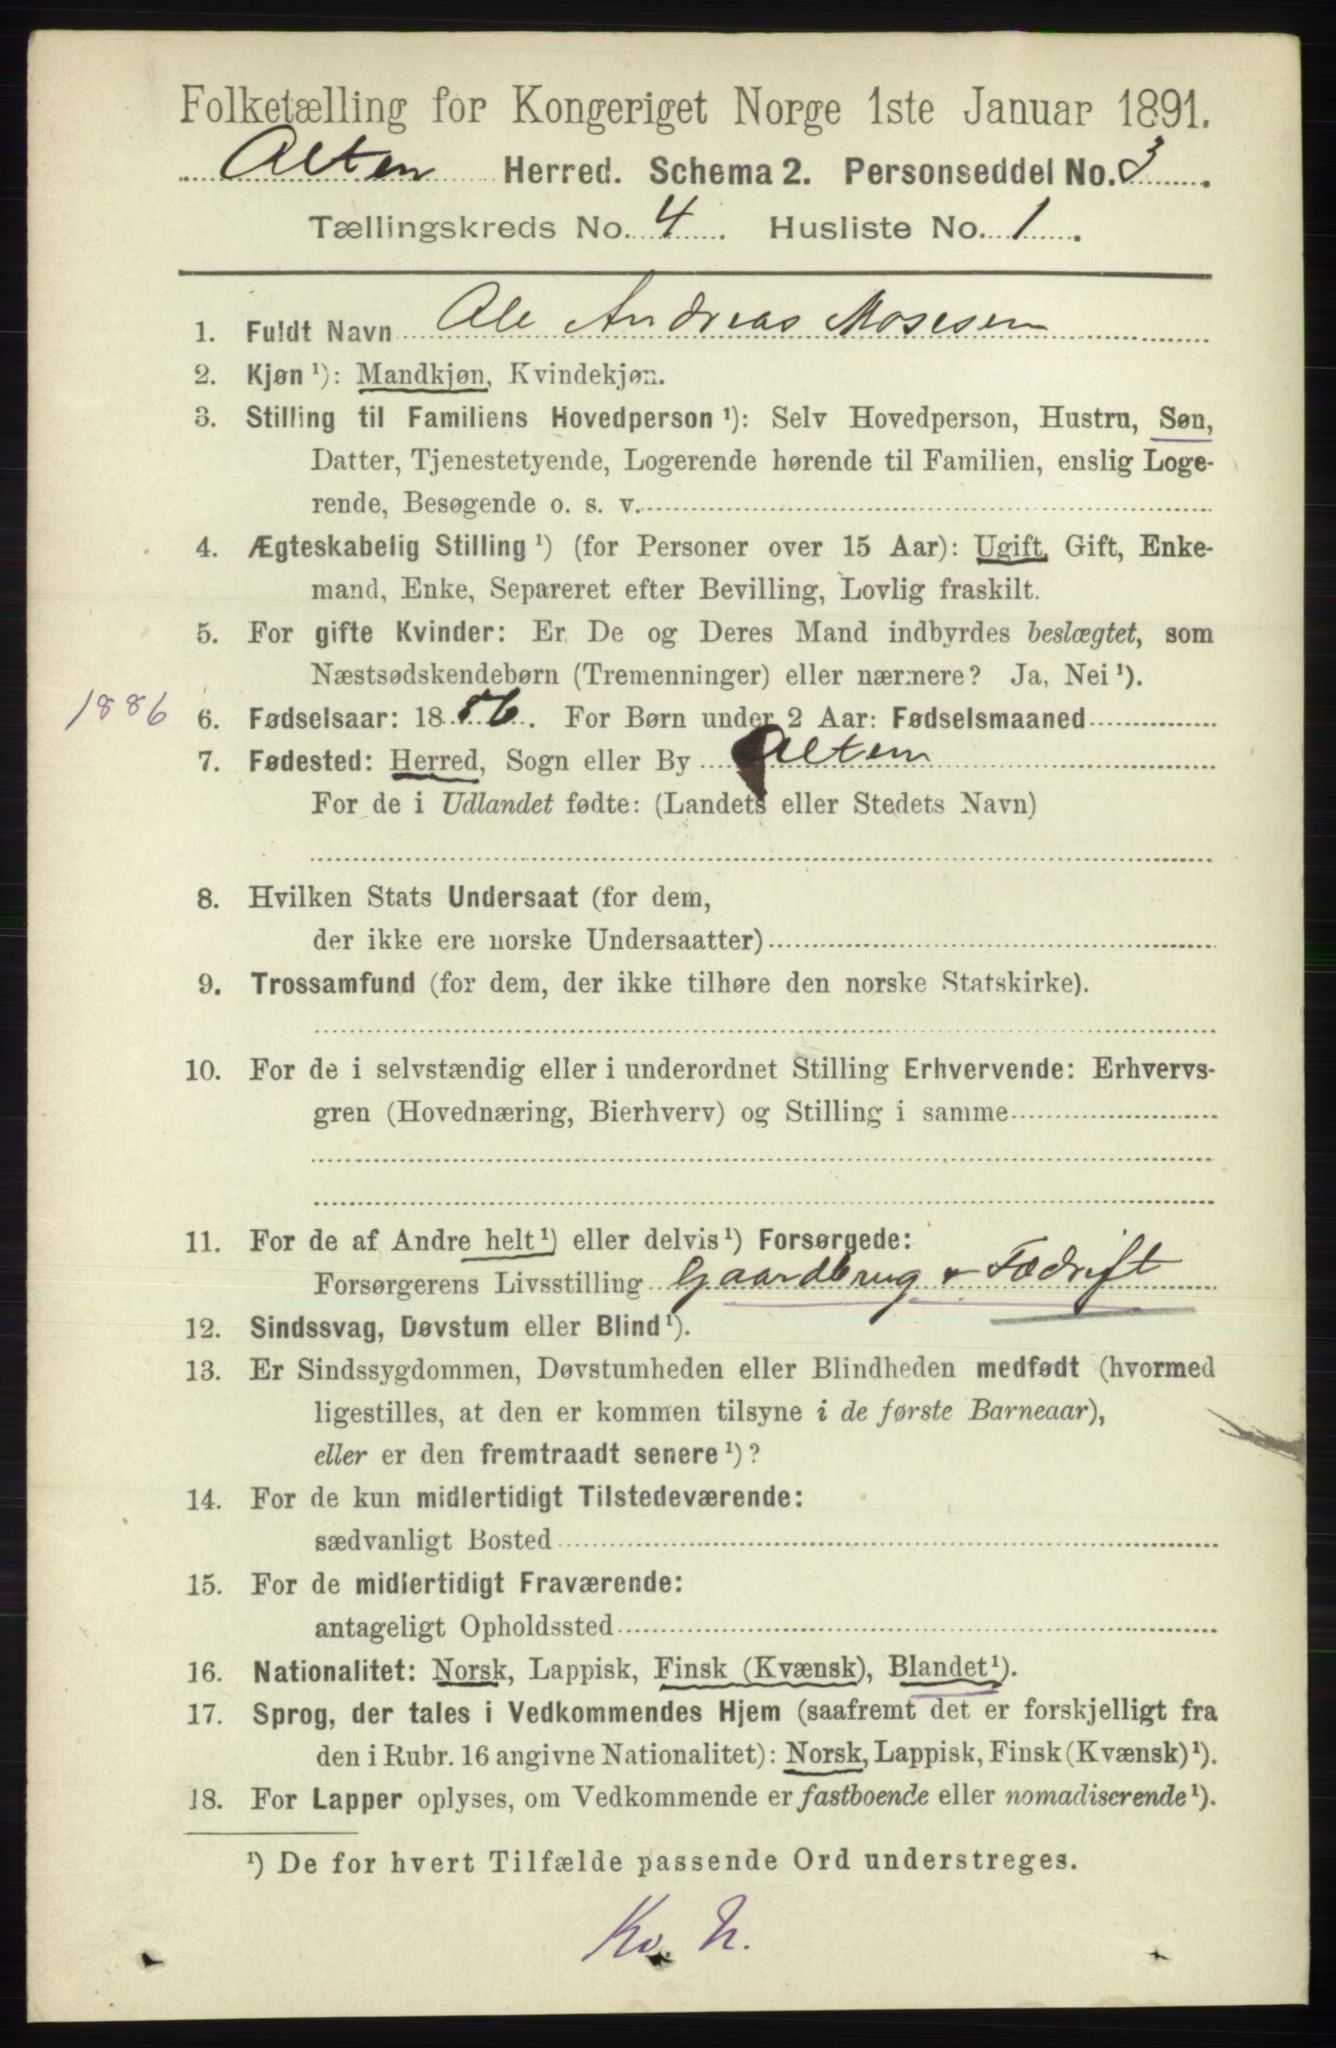 Folketælling for Kongeriget Norge 1ste Januar 1891.
Alten Herred. Schema 2. Personseddel No. 3.
Tællingskreds No. 4. Husliste No. 1.
1. Fuldt Navn Ole Andreas Mosesen
2. Kjøn ¹): Mandkjøn, Kvindekjøn.
3. Stilling til Familiens Hovedperson ¹): Selv Hovedperson, Hustru, Søn,
Datter, Tjenestetyende, Logerende hørende til Familien, enslig Loge-
rende, Besøgende o. s. v.
4. Ægteskabelig Stilling ¹) (for Personer over 15 Aar): Ugift, Gift, Enke-
mand, Enke, Separeret efter Bevilling, Lovlig fraskilt.
5. For gifte Kvinder: Er De og Deres Mand indbyrdes beslægtet, som
Næstsødskendebørn (Tremenninger) eller nærmere? Ja, Nei ¹).
1886 6. Fødselsaar: 1886. For Børn under 2 Aar: Fødselsmaaned
7. Fødested: Herred, Sogn eller By Alten
For de i Udlandet fødte: (Landets eller Stedets Navn)
8. Hvilken Stats Undersaat (for dem,
der ikke ere norske Undersaatter)
9. Trossamfund (for dem, der ikke tilhøre den norske Statskirke).
10. For de i selvstændig eller i underordnet Stilling Erhvervende: Erhvervs-
gren (Hovednæring, Bierhverv) og Stilling i samme
11. For de af Andre helt ¹) eller delvis ¹) Forsørgede:
Forsørgerens Livsstilling Gaardbrug & Fædrift
12. Sindssvag, Døvstum eller Blind ¹).
13. Er Sindssygdommen, Døvstumheden eller Blindheden medfødt (hvormed
ligestilles, at den er kommen tilsyne i de første Barneaar),
eller er den fremtraadt senere ¹)?
14. For de kun midlertidigt Tilstedeværende:
sædvanligt Bosted
15. For de midlertidigt Fraværende:
antageligt Opholdssted
16. Nationalitet: Norsk, Lappisk, Finsk (Kvænsk), Blandet ¹).
17. Sprog, der tales i Vedkommendes Hjem (saafremt det er forskjelligt fra
den i Rubr. 16 angivne Nationalitet): Norsk, Lappisk, Finsk (Kvænsk) ¹).
18. For Lapper oplyses, om Vedkommende er fastboende eller nomadiserende ¹).
¹) De for hvert Tilfælde passende Ord understreges.
Kv. N.